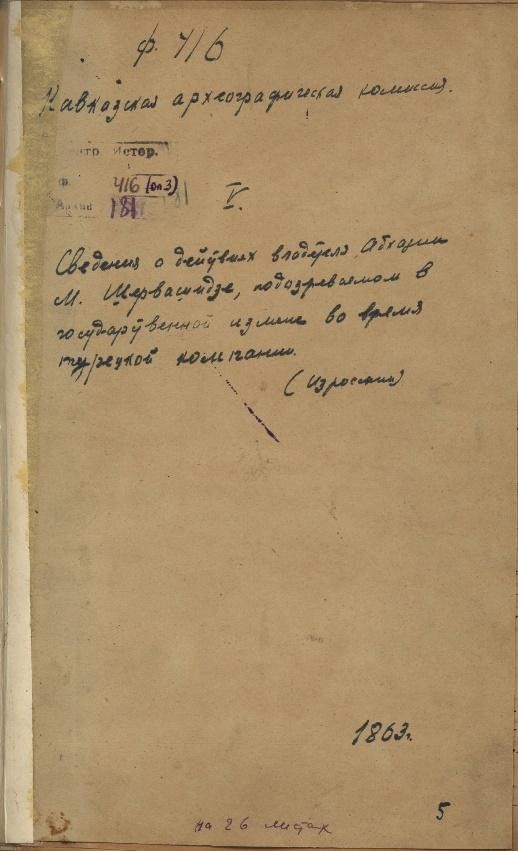 ф. 416
Кавказская археографическая комиссия.
Истор.
416 (оп 3)
181
V.
Сведения о действиях владетеля Абхазии
М. Шервашидзе, подозреваемом в
государственной измене во время
турецкой компании.
1863г.
5
на 26 листах